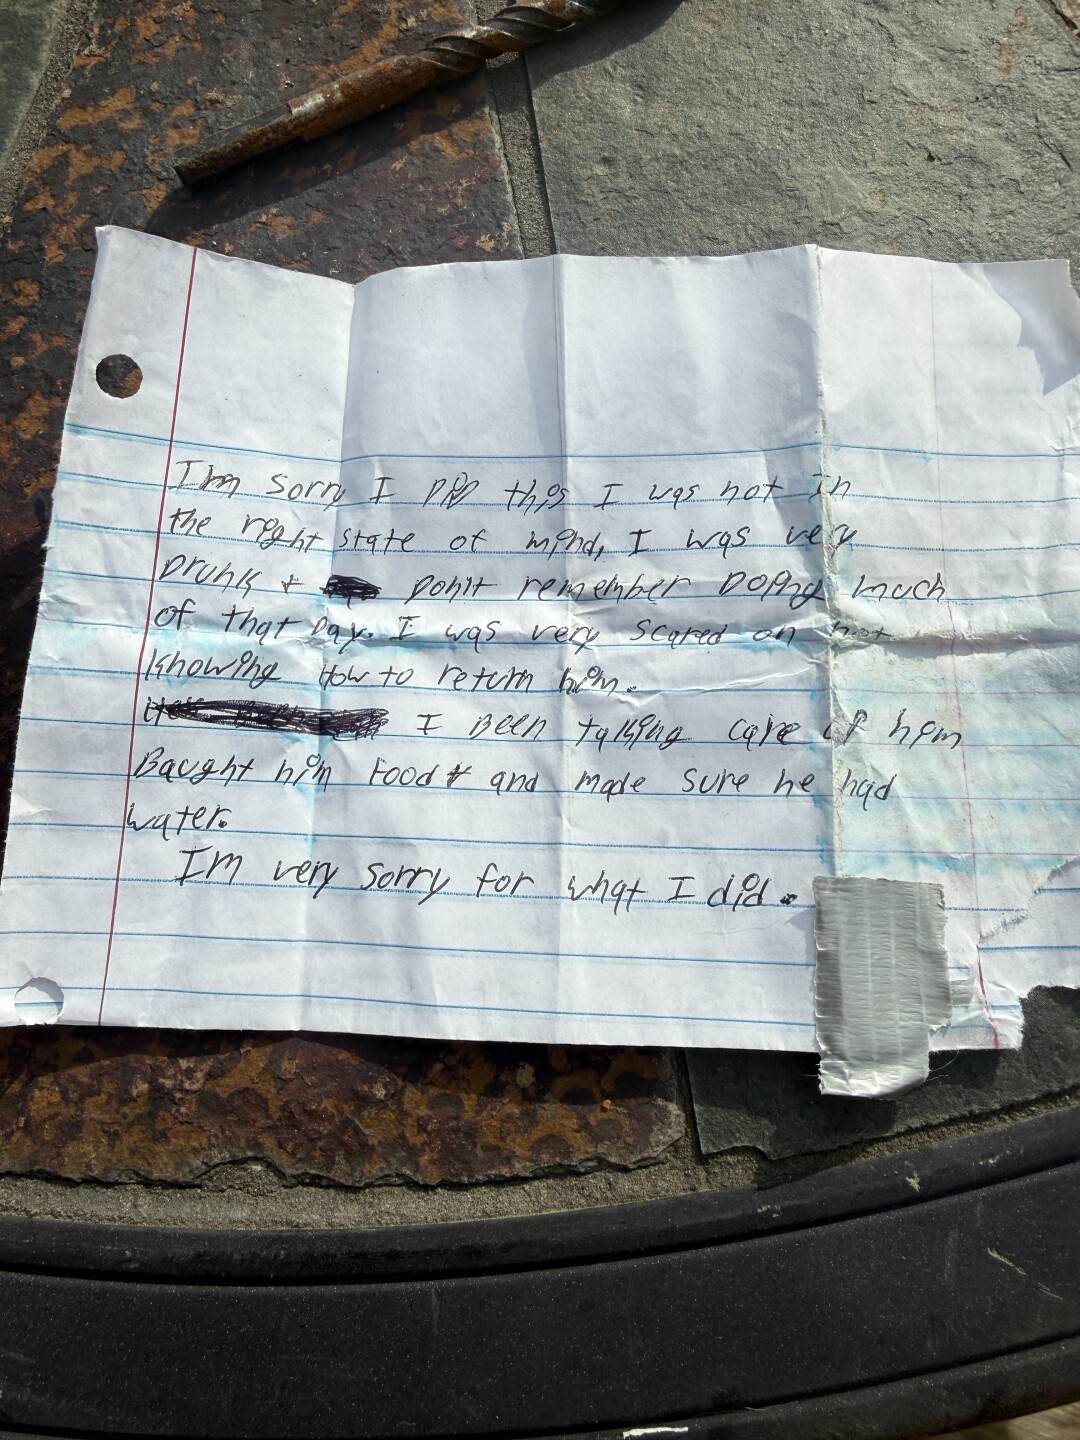 I'm sorry I DiD this I was not in
the right state of mind, I was very
Drunk + Don't remember Doing much
of that Day. I was very scared on not
knowing How to return him.
I Been taking care of him
Baught him food and made sure he had
water.
I'm very sorry for what I did.